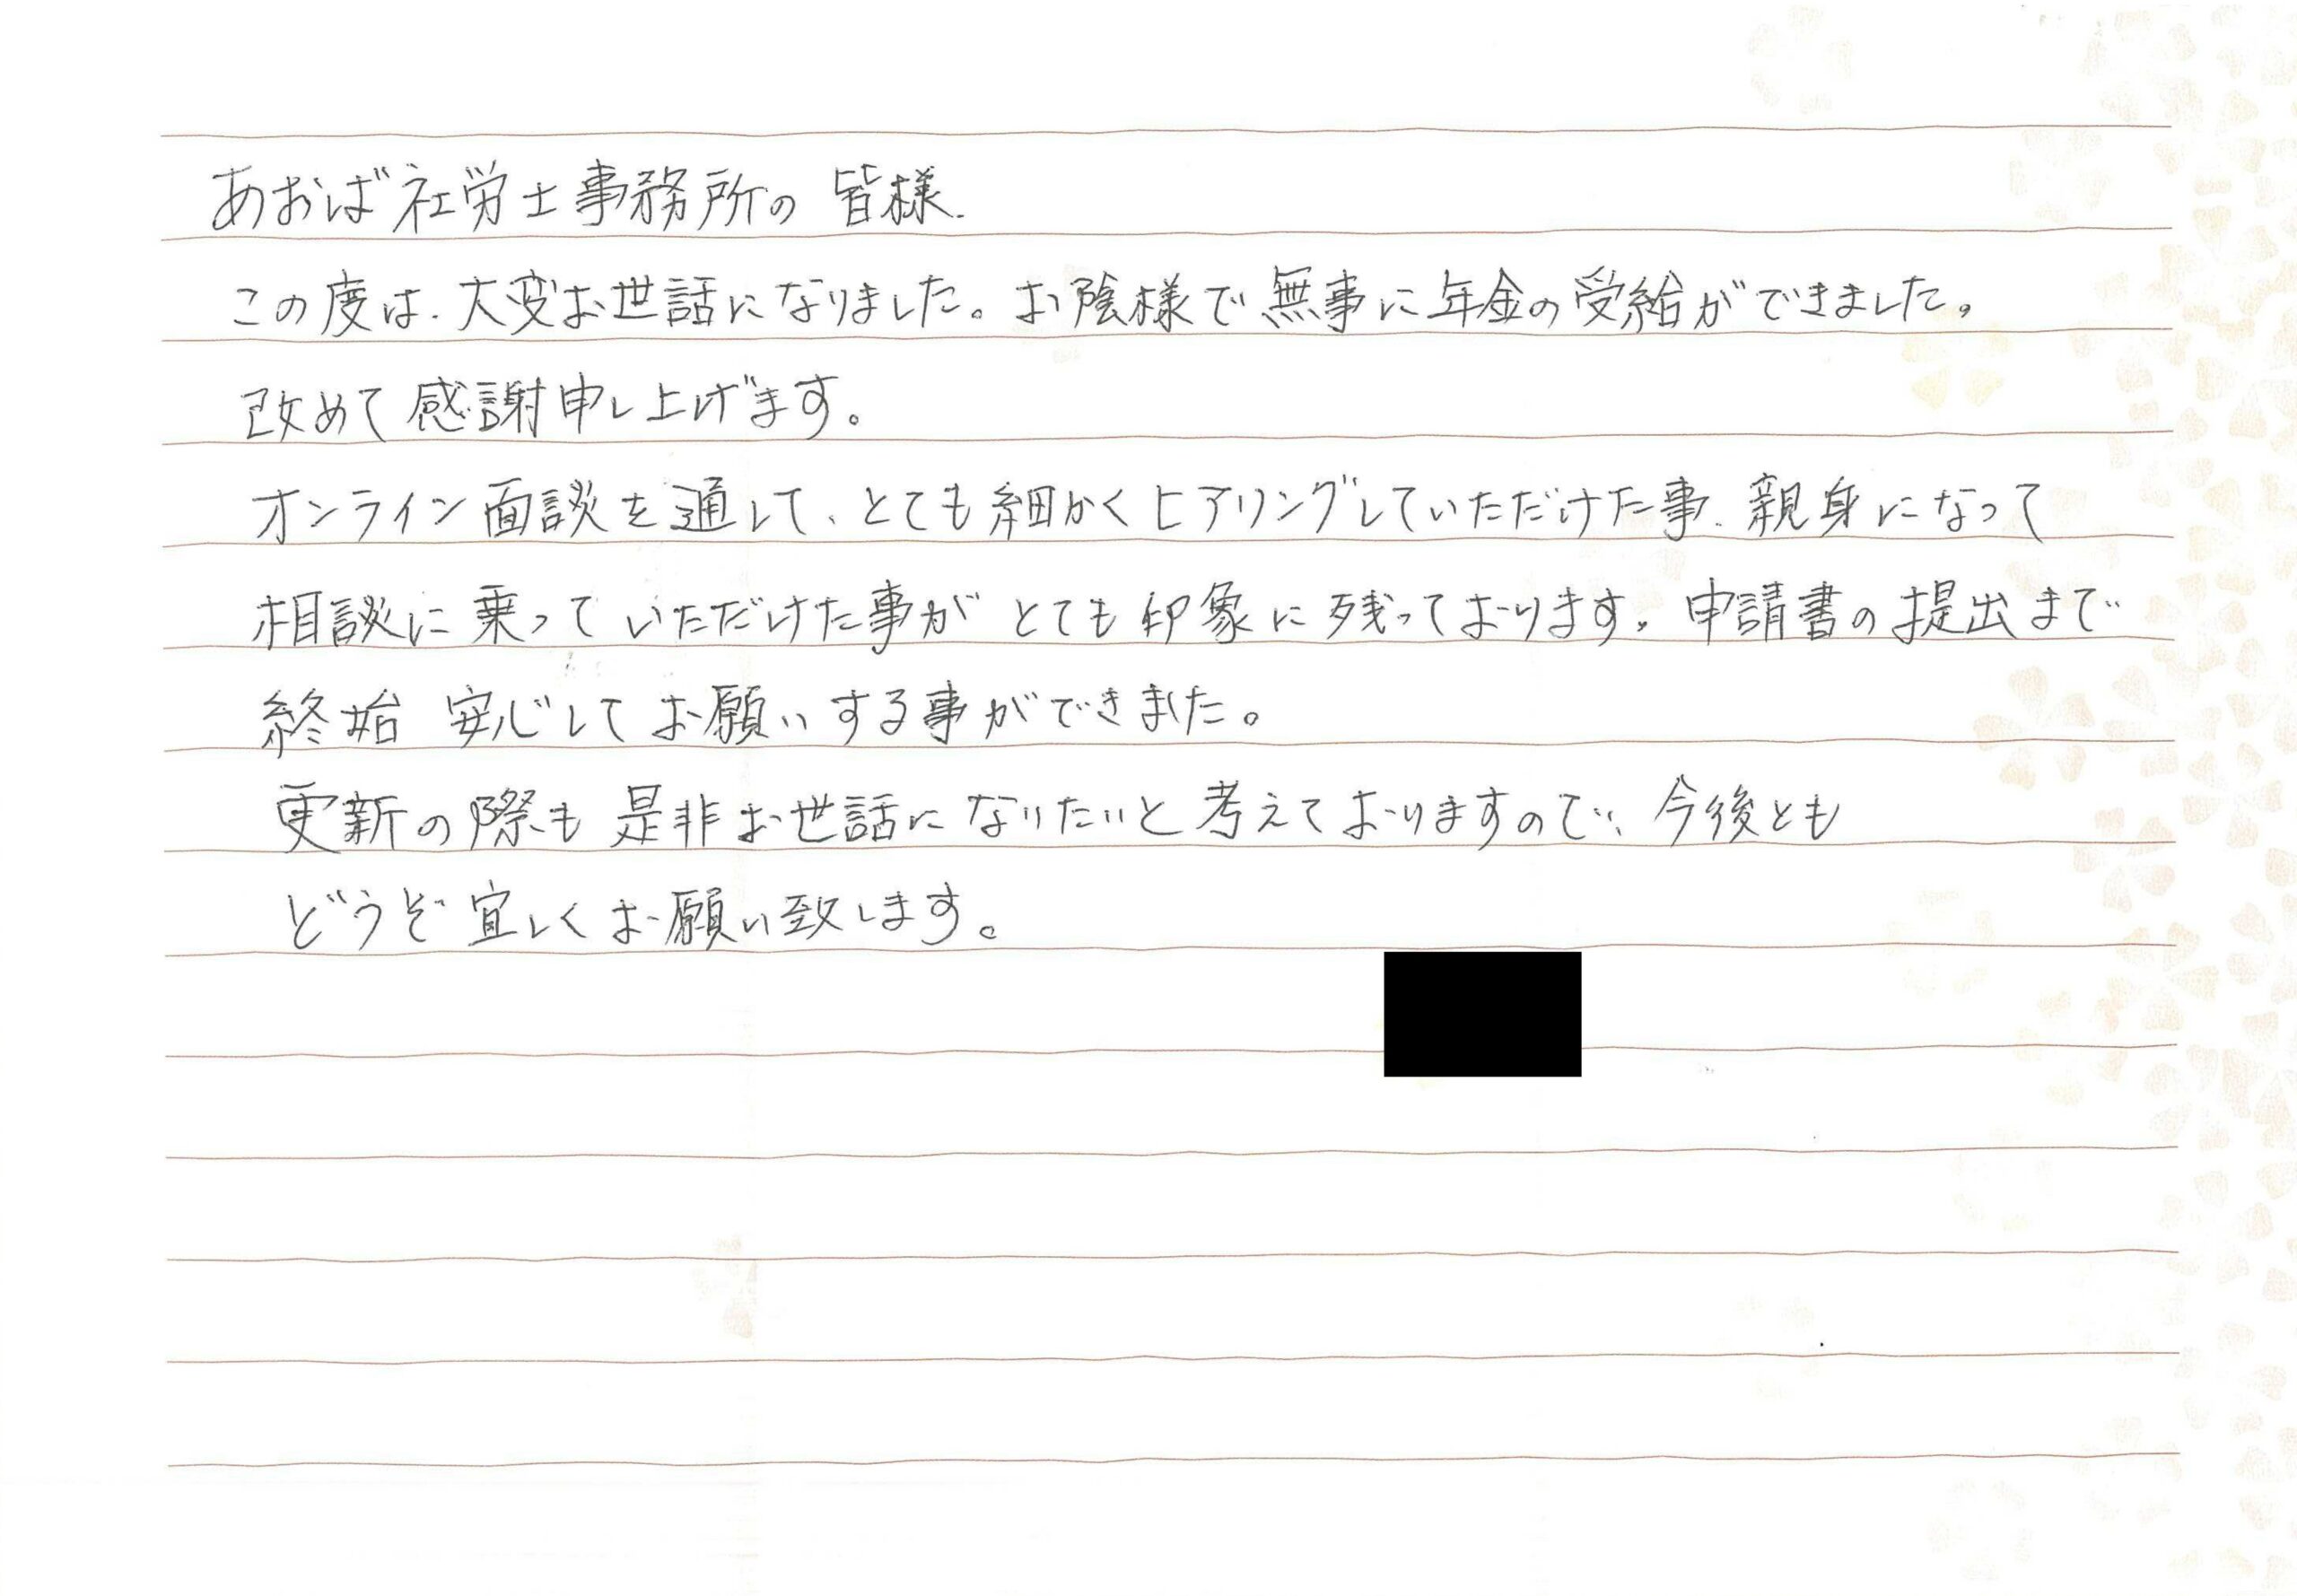 あおば社労士事務所の 皆様.
この度は、大変お世話になりました。お陰様で無事に年金の受給ができました。
改めて感謝申し上げます。
オンライン面談を通して、とても細かくヒアリングしていただけた事、親身になって
相談に乗っていただけた事がとても印象に残っております。申請書の提出まで
終始 安心してお願いする事ができました。
更新の際も是非お世話になりたいと考えておりますので、今後とも
どうぞ宜しくお願い致します。